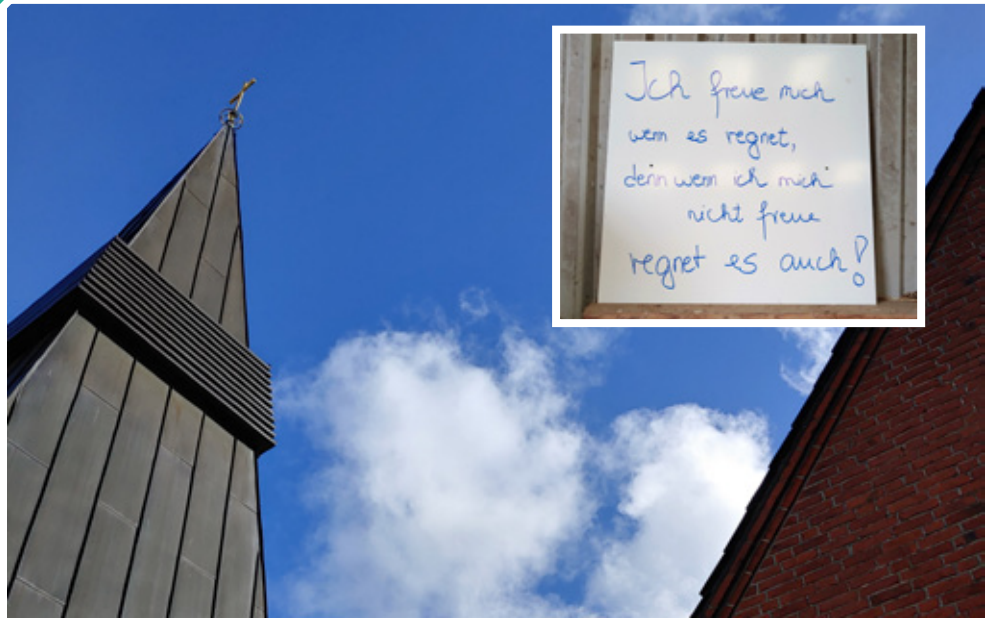 Ich freue mich
wenn es regnet,
denn wenn ich mich
nicht freue
regnet es auch!